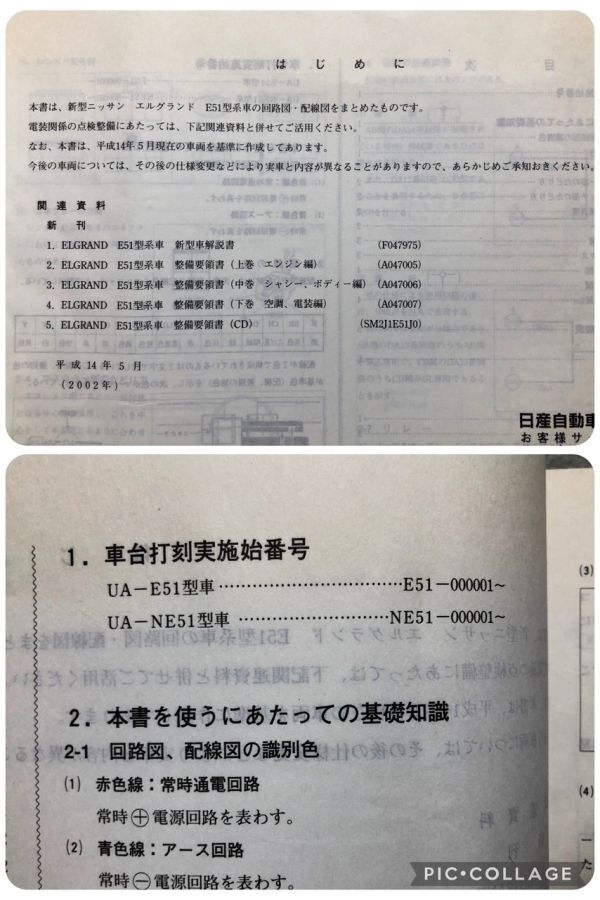 はじめに
本書は、新型ニッサン エルグランド E51型系車の回路図・配線図をまとめたものです。
電装関係の点検整備にあたっては、下記関連資料と併せてご活用ください。
なお、本書は、平成14年5月現在の車両を基準に作成してあります。
今後の車両については、その後の仕様変更などにより実車と内容が異なることがありますので、あらかじめご承知おきください。
関連資料
新刊
1. ELGRAND E51型系車 新型車解説書 (F047975)
2. ELGRAND E51型系車 整備要領書(上巻 エンジン編) (A047005)
3. ELGRAND E51型系車 整備要領書(中巻 シャシー、ボディー編) (A047006)
4. ELGRAND E51型系車 整備要領書(下巻 空調、電装編) (A047007)
5. ELGRAND E51型系車 整備要領書(CD) (SM2J1E51J0)
平成14年5月
(2002年)
日産自動車
お客様サ
1. 車台打刻実施始番号
UA-E51型車……………………………E51-000001~
UA-NE51型車……………………………NE51-000001~
2. 本書を使うにあたっての基礎知識
2-1 回路図、配線図の識別色
(1) 赤色線:常時通電回路
常時⊕電源回路を表わす。
(2) 青色線:アース回路
常時⊖電源回路を表わす。
(3)
(4)
PIC•COLLAGE